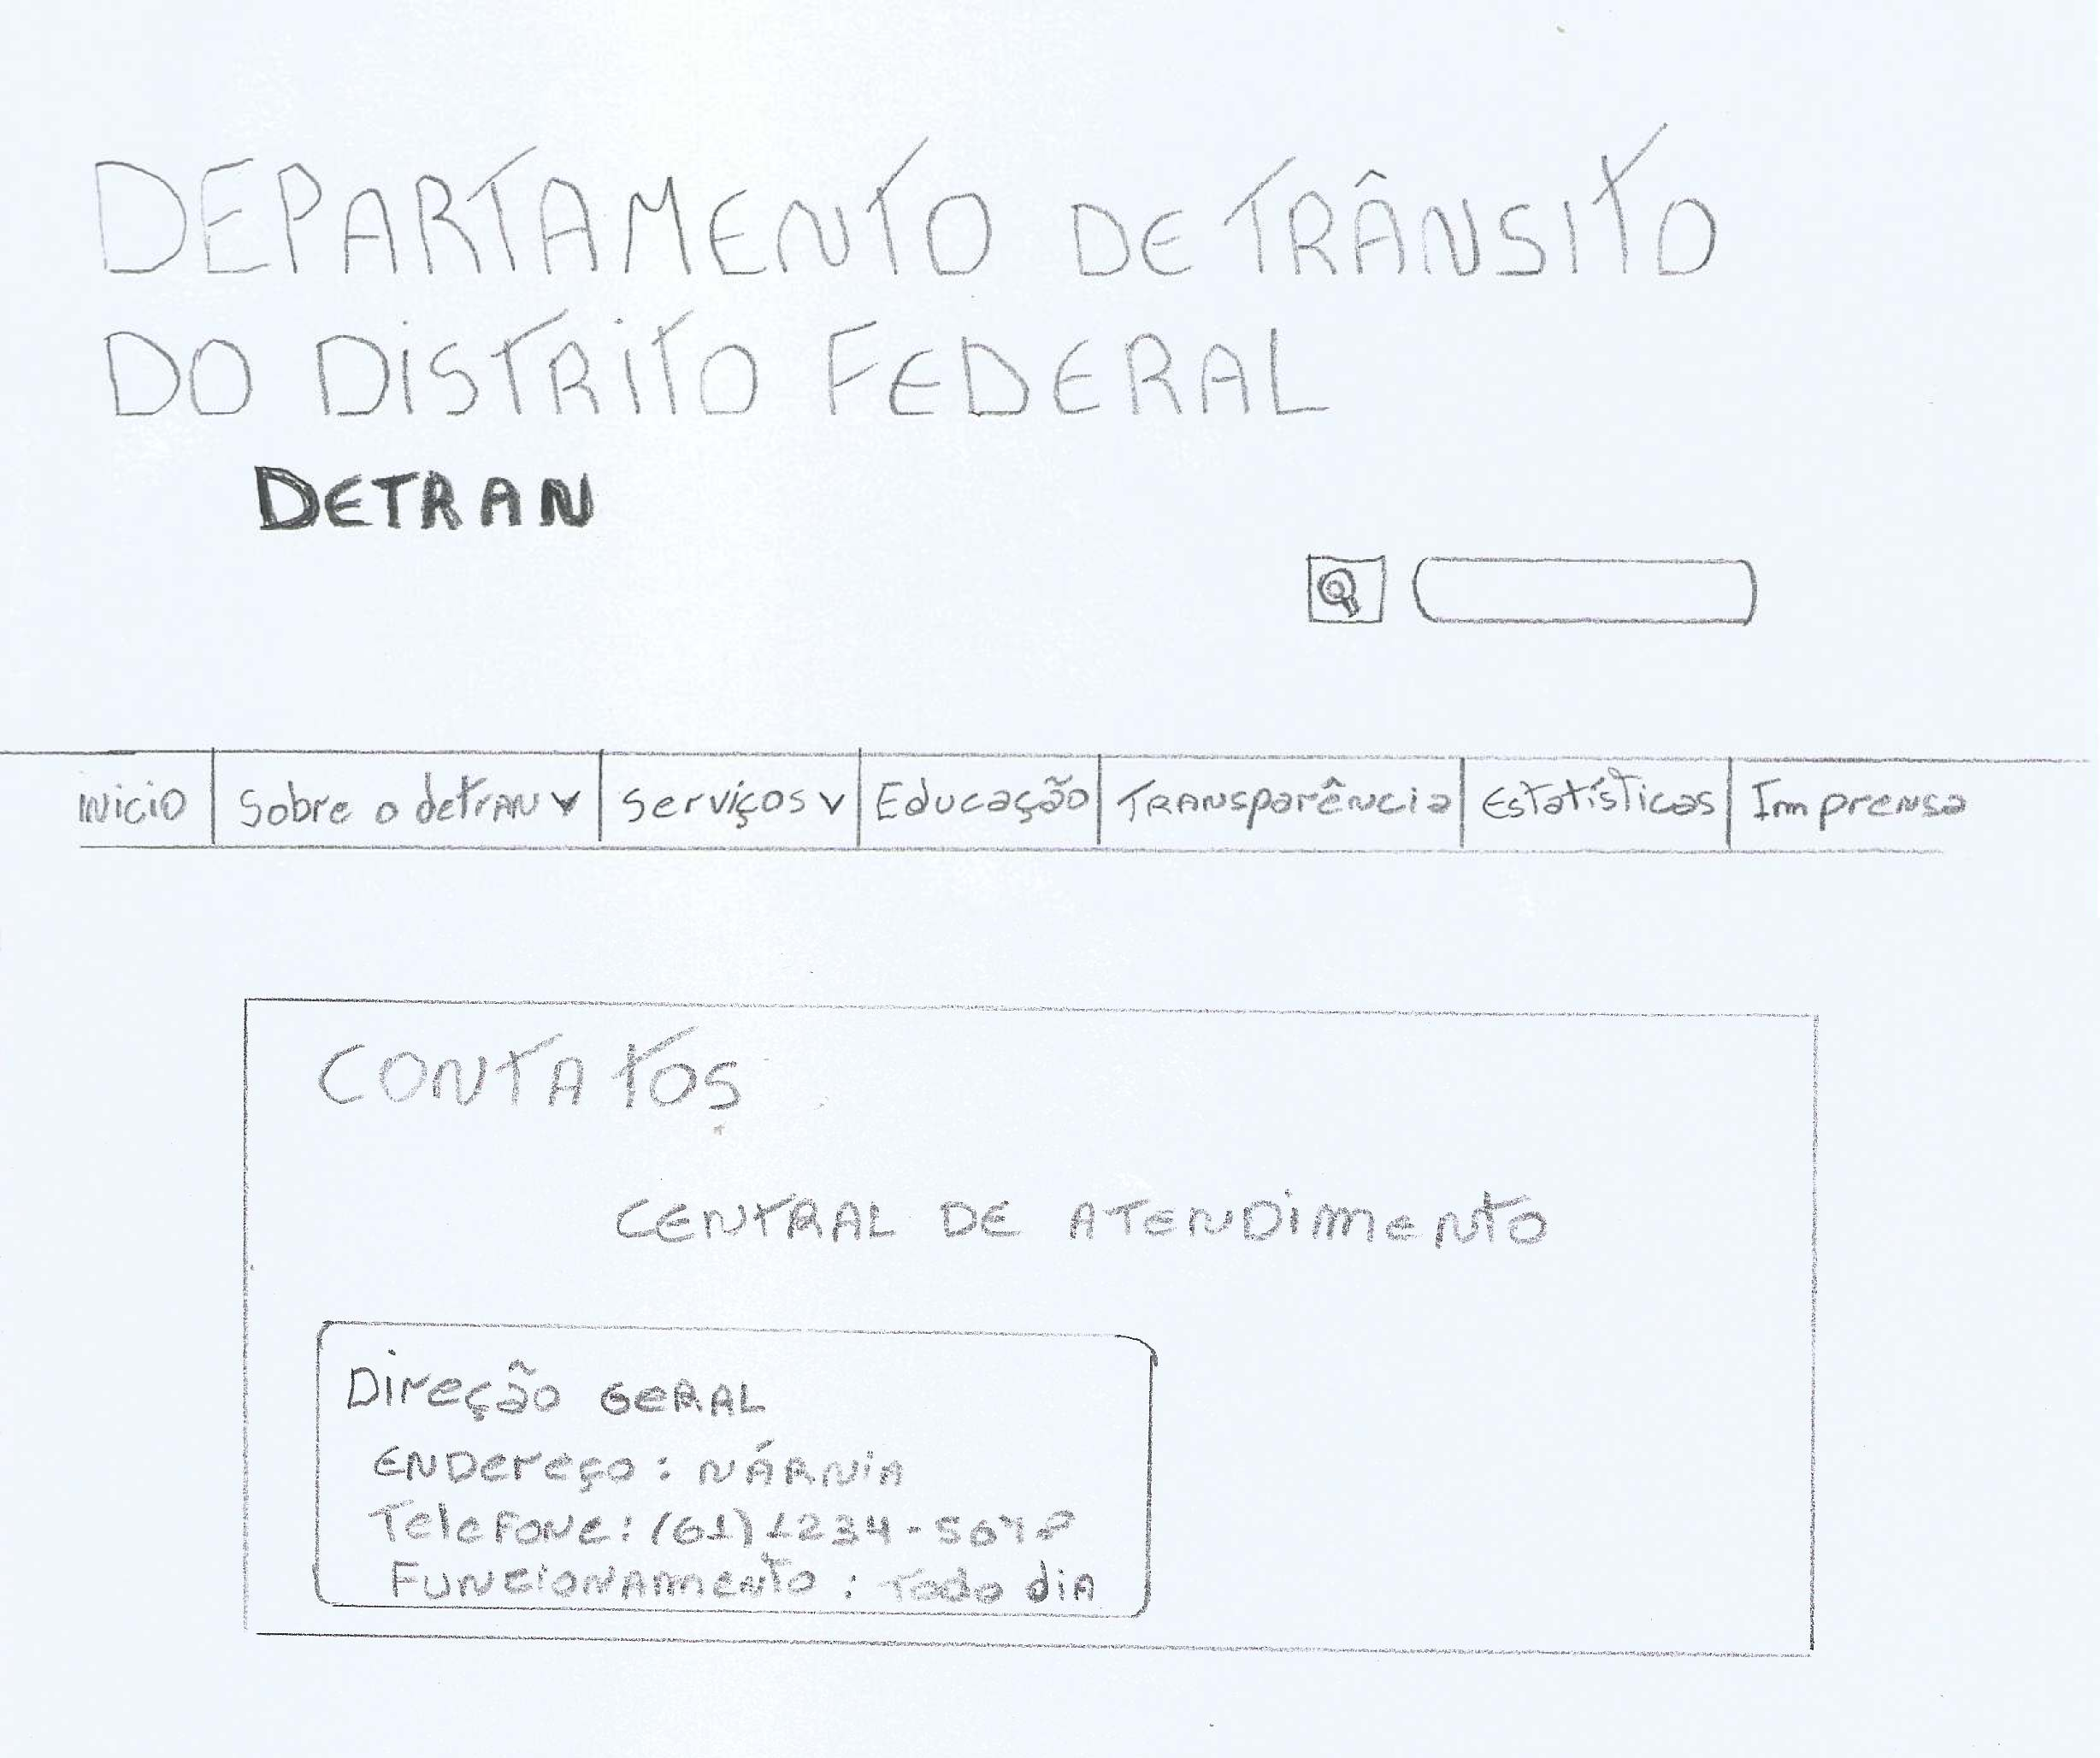 DEPARTAMENTO DE TRÂNSITO
DO DISTRITO FEDERAL
DETRAN
inicio Sobre o detran Serviços Educação Transparência Estatísticas Imprensa
CONTATOS
CENTRAL DE ATENDIMENTO
Direção GERAL
ENDereço: NÁRNiA
Telefone: (61) 1234-5678
Funcionamento: Todo diA